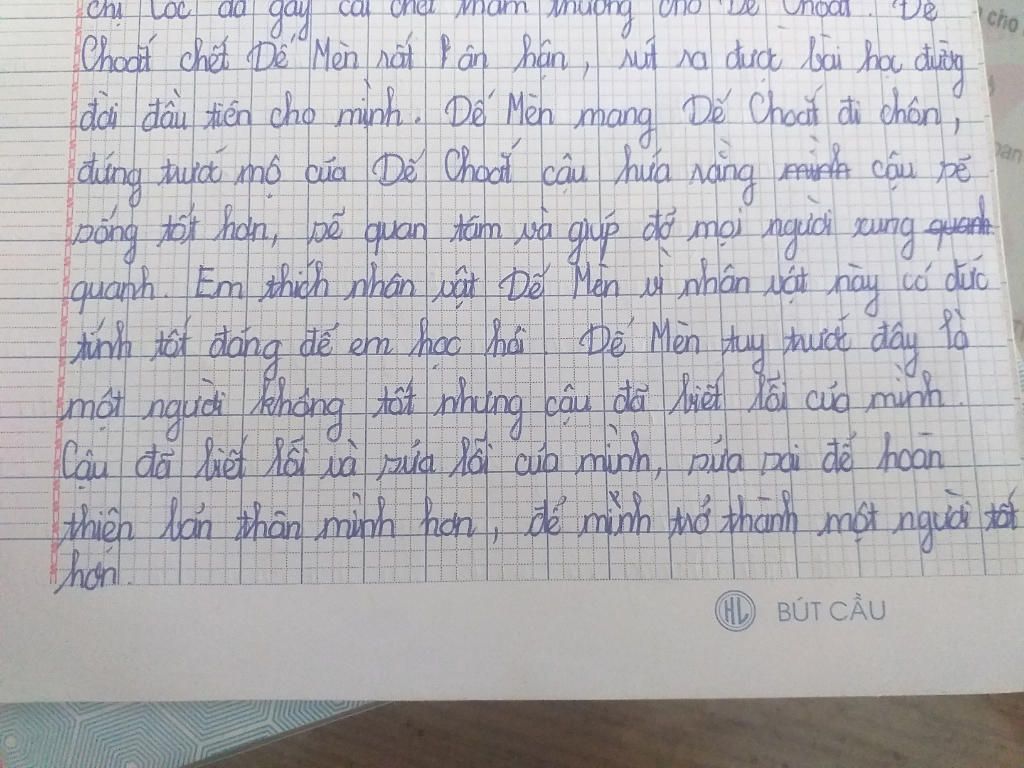 chị Cốc đã gây cái chết thảm thương cho Dế Choắt. Dế
Choắt chết Dế Mèn rất ân hận, rút ra được bài học đường
đời đầu tiên cho mình. Dế Mèn mang Dế Choắt đi chôn,
đứng trước mộ của Dế Choắt cậu hứa rằng mình cậu sẽ
sống tốt hơn, sẽ quan tâm và giúp đỡ mọi người xung quanh
quanh. Em thích nhân vật Dế Mèn vì nhân vật này có đức
tính tốt đáng để em học hỏi. Dế Mèn tuy trước đây là
một người không tốt nhưng cậu đã biết lỗi của mình.
Cậu đã biết lỗi và sửa lỗi của mình, sửa sai để hoàn
thiện bản thân mình hơn, để mình trở thành một người tốt
hơn.
HL BÚT CẦU
cho